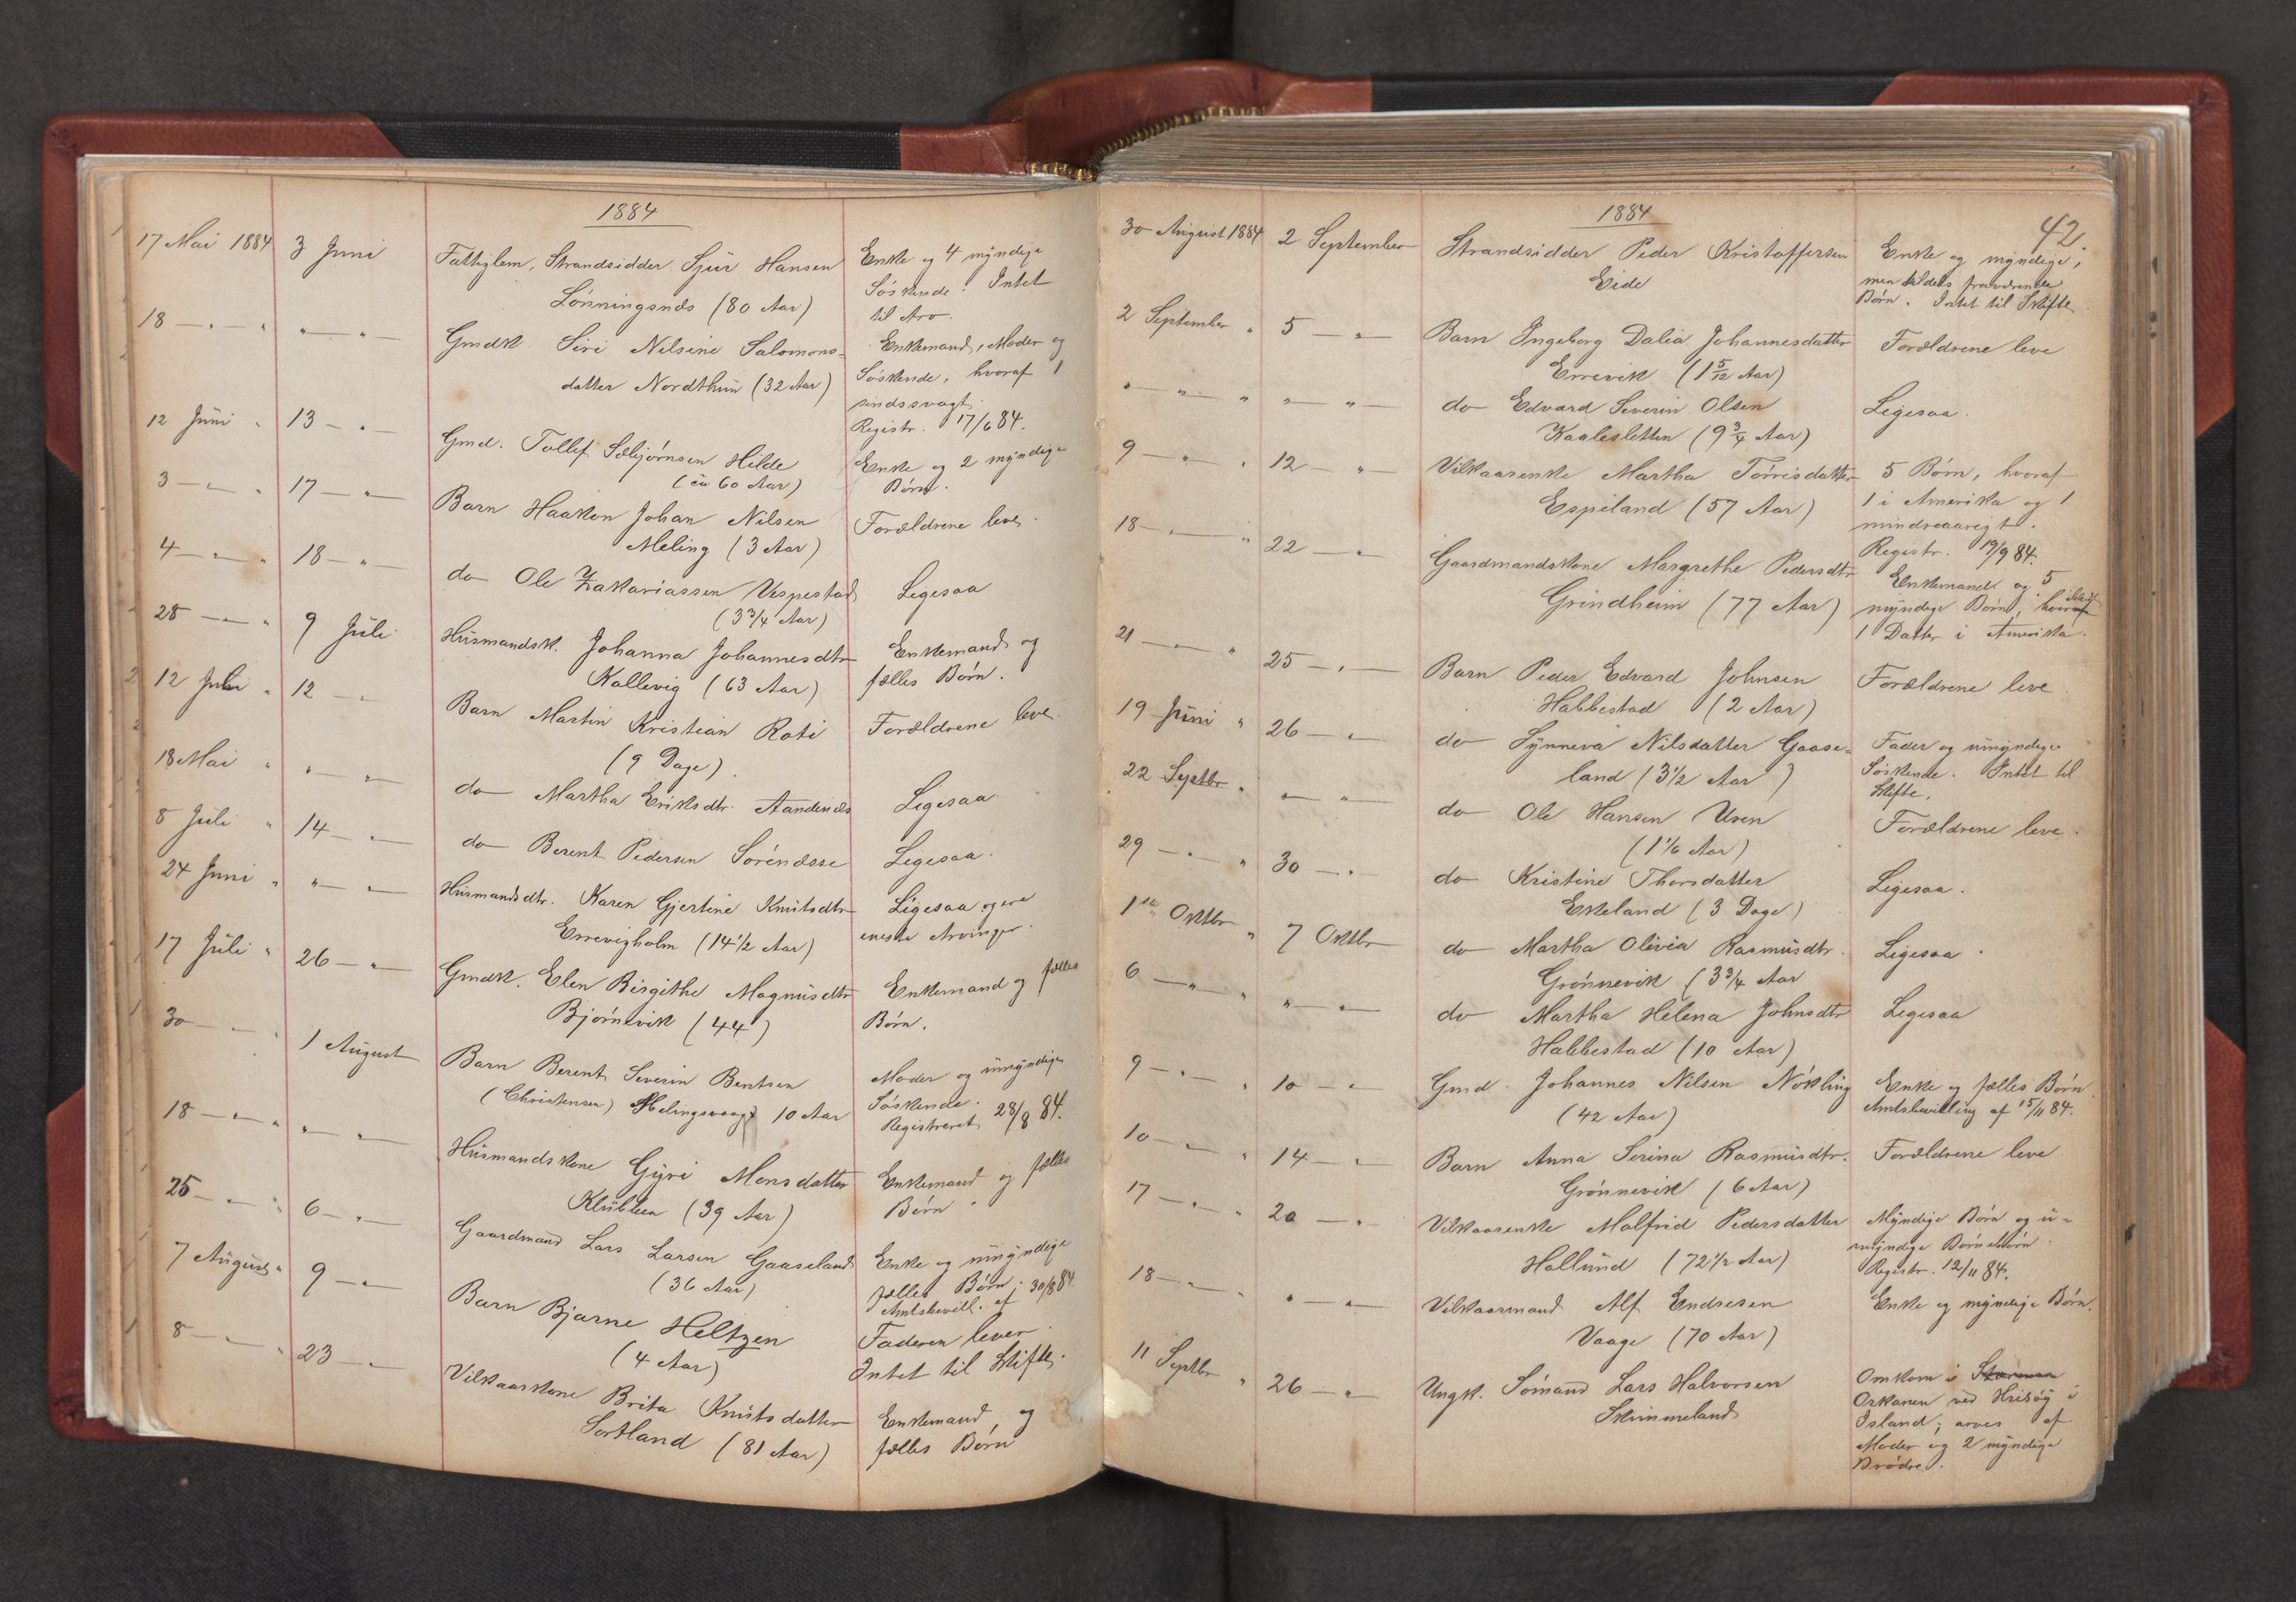 1884
17 Mai 1884 3 Juni Fattiglem, Strandsidder Sjur Hansen Enke og 4 myndige
Lønningsnæs (80 Aar) Søskende. Intet
til Arv.
18 — " " " — " Gmdk. Siri Nilsine Salomons- Enkemand, Moder og
datter Nordthun (32 Aar) Søskende, hvoraf 1
sindssvagt.
Registr. 17/6 84.
12 Juni " 13 — " — Gmd. Tollef Sæbjørnsen Hilde Enke og 2 myndige
(ca 60 Aar) Børn.
3 — " — " 17 — " — Barn Haakon Johan Nilsen Forældrene leve.
Meling (3 Aar)
4 — " — " 18 — " — do Ole Zakariassen Vespestad Ligesaa
(3 3/4 Aar)
28 — " — " 9 Juli Husmandsk. Johanna Johannesdtr Enkemand og
Kallevig (63 Aar) fælles Børn.
12 Juli " 12 — " Barn Martin Kristian Roti Forældrene leve.
(9 Dage)
18 Mai " " — " — do Martha Eriksdtr. Ligesaa
8 Juli " 14 — " — do Berent Pedersen Ligesaa.
24 Juni " " — " — Husmandsdtr. Karen Gjertine Knutsdtr Ligesaa og ere
Errevigholm (14 1/2 Aar) eneste Arvinger.
17 Juli " 26 — " — Gmdk. Elen Birgithe Magnusdtr Enkemand og fælles
Bjørnevik (44) Børn.
30 — " — 1 August Barn Berent Severin Bentsen Moder og umyndige
(Christensen) Melingsvaag 10 Aar Søskende.
Registreret 28/8 84.
18 — " — " " — " — Husmandskone Gyri Monsdatter Enkemand og fælles
(39 Aar) Børn.
25 — " — " 6 — " — Gaardmand Lars Larsen Gaaseland Enke og umyndige
(36 Aar) fælles Børn; 30/8 84
Amtsbevill. af
7 August " 9 — " — Barn Bjarne Heltzen Faderen lever.
(4 Aar) Intet til Skifte.
8 — " — " 23 — " — Vilkaarskone Brita Knutsdatter Enkemand og
Sortland (81 Aar) fælles Børn
1884
42.
30 August 1884 2 September Strandsidder Peder Kristoffersen Enke og myndige,
Eide men tildels fraværende
Børn. Intet til Skifte
2 September " 5 — " — Barn Ingeborg Dalia Johannesdatter Forældrene leve
Errevik (1 5/12 Aar)
" — " — " " — " — do Edvard Severin Olsen Ligesaa.
Kaalesletten (9 3/4 Aar)
9 — " — " 12 — " — Vilkaarsenke Martha Tørrisdatter 5 Børn, hvoraf
Espeland (57 Aar) 1 i Amerika og 1
mindreaarigt.
Registr. 19/9 84.
18 — " — " 22 — " — Gaardmandskone Margrethe Pedersdtr Enkemand og 5
Grindheim (77 Aar) myndige Børn, hvoraf
1 Datter i Amerika.
21 — " — " 25 — " — Barn Peder Edvard Johnsen Forældrene leve.
Habbestad (2 Aar)
19 Juni " 26 — " — do Synneva Nilsdatter Gaase- Fader og umyndige
land (3 1/2 Aar) Søskende. Intet til
Skifte.
22 Septbr " " — " — do Ole Hansen Uren Forældrene leve.
(1 1/6 Aar)
29 — " — " 30 — " — do Kristine Thorsdatter Ligesaa.
Eskeland (3 Dage)
1ste Oktbr " 7 Oktbr do Martha Olivia Rasmusdtr. Ligesaa.
Grønnevik (3 3/4 Aar
6 — " — " " — " — do Martha Helena Johnsdtr Ligesaa
Habbestad (10 Aar)
9 — " — " 10 — " — Gmd. Johannes Nilsen Nøkling Enke og fælles Børn.
(42 Aar) Amtsbevilling af 15/11 84.
10 — " — " 14 — " — Barn Anna Serina Rasmusdtr. Forældrene leve
Grønnevik (6 Aar)
17 — " — " 20 — " — Vilkaarsenke Malfrid Pedersdatter Myndige Børn og u-
Hallund (72 1/2 Aar) myndige Børnebørn.
Registr. 12/11 84.
18 — " — " " — " — Vilkaarmand Alf Endresen Enke og myndige Børn.
Vaage (70 Aar)
11 Septbr " 26 — " — Ungk. Sømand Lars Halvorsen Omkom i Stormen
Skimmeland Orkanen ved Hrisøy i
Island; arves af
Moder og 2 myndige
Brødre.